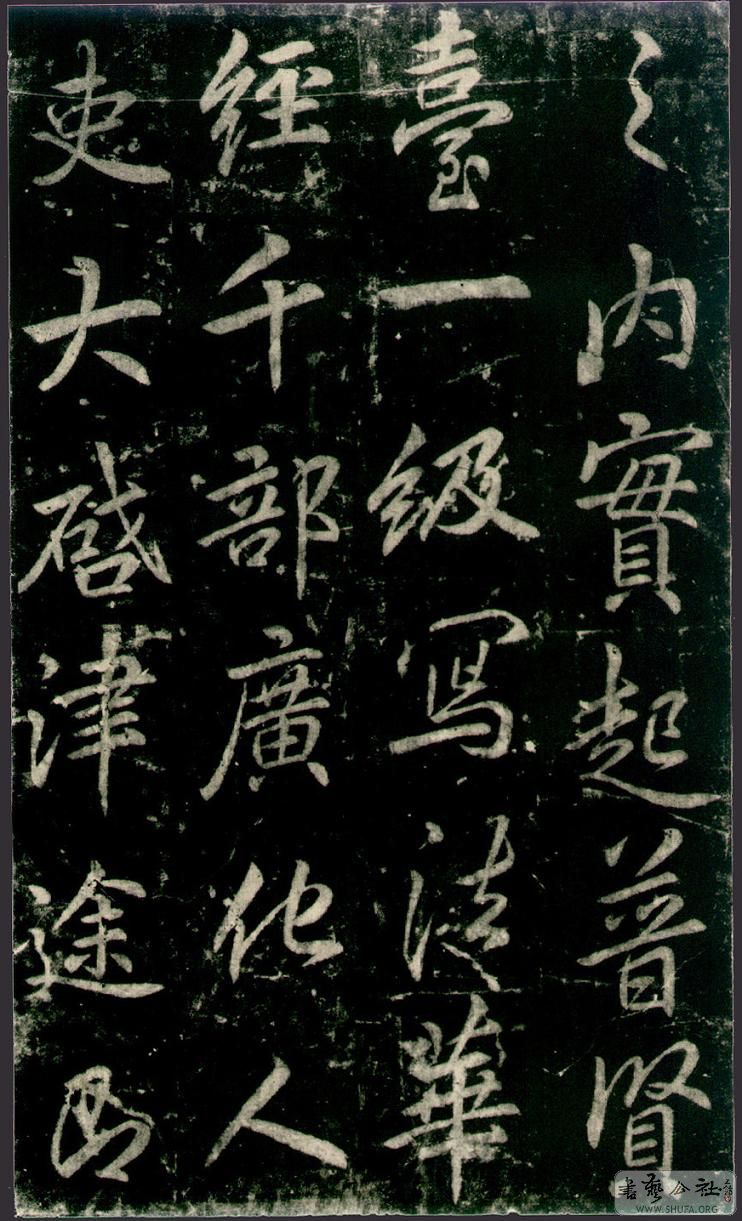 之内實起普賢
臺一級寫法華
經千部廣化人
吏大啓津途
書藝公社
WWW.SHUFA.ORG